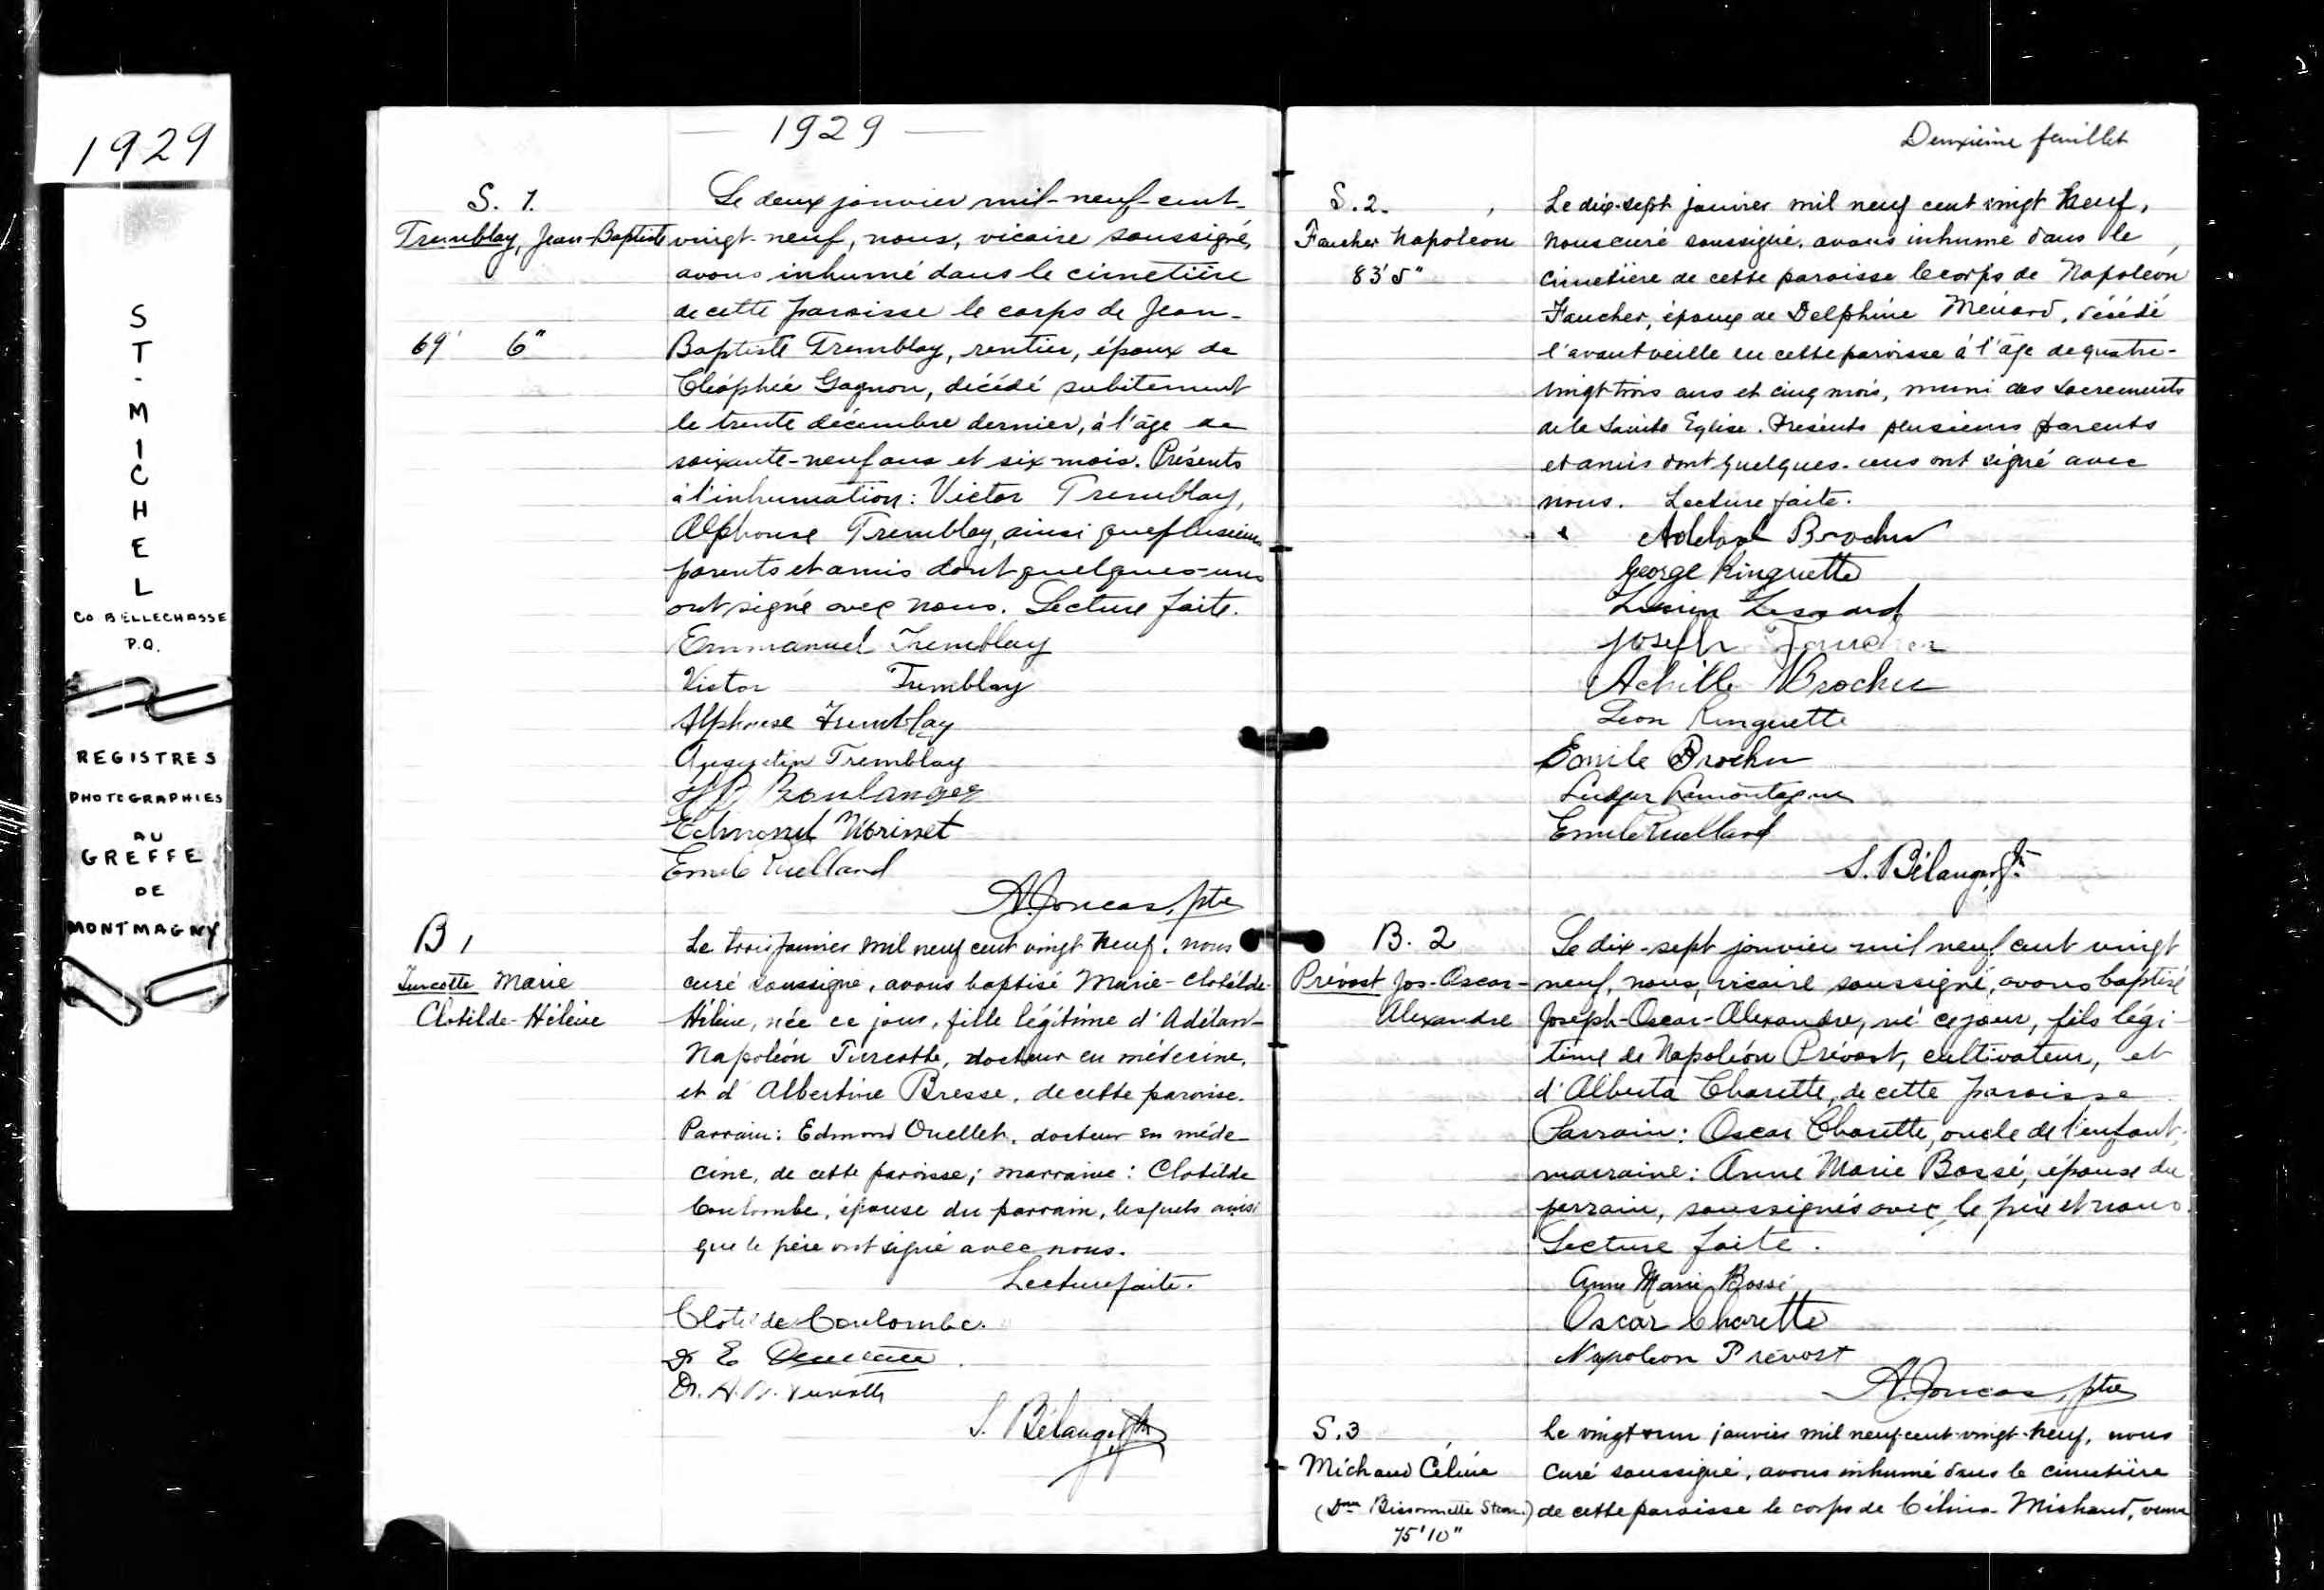 1929
ST-MICHEL
CO BELLECHASSE
P.Q.
REGISTRES
PHOTOGRAPHIES
AU
GREFFE
DE
MONTMAGNY
1929
S. 1.
Tremblay, Jean-Baptiste
69' 6"
Le deux janvier mil-neuf-cent-
vingt-neuf, nous, vicaire soussigné,
avons inhumé dans le cimetière
de cette paroisse le corps de Jean-
Baptiste Tremblay, rentier, époux de
Cléophée Gagnon, décédé subitement
le trente décembre dernier, à l'âge de
soixante-neuf ans et six mois. Présents
à l'inhumation: Victor Tremblay,
Alphonse Tremblay, ainsi que plusieurs
parents et amis dont quelques-uns
ont signé avec nous. Lecture faite.
Emmanuel Tremblay
Victor Tremblay
Alphonse Tremblay
Augustin Tremblay
Boulanger
Edmond Morisset
Emile Ruelland
A. Joncas, ptre
B 1
Turcotte Marie
Clotilde-Hélène
Le trois janvier mil neuf cent vingt neuf, nous
curé soussigné, avons baptisé Marie-Clotilde-
Hélène, née ce jour, fille légitime d'Adélard-
Napoléon Turcotte, docteur en médecine,
et d'Albertine Bresse, de cette paroisse.
Parrain: Edmond Ouellet, docteur en méde-
cine, de cette paroisse; marraine: Clotilde
Coulombe, épouse du parrain, lesquels ainsi
que le père ont signé avec nous.
Lecture faite.
Clotilde Coulombe.
Dr E
Dr. A. N. Turcotte
S. Bélanger
Deuxième feuillet
S. 2.
Faucher Napoléon
83' 5"
Le dix-sept janvier mil neuf cent vingt neuf,
nous curé soussigné, avons inhumé dans le
cimetière de cette paroisse le corps de Napoléon
Faucher, époux de Delphine Ménard, décédé
l'avant veille en cette paroisse à l'âge de quatre-
vingt trois ans et cinq mois, muni des Sacrements
de la Sainte Eglise. Présents plusieurs parents
et amis dont quelques-uns ont signé avec
nous. Lecture faite.
Adélard Brochu
George Ringuette
Lucien Lessard
Joseph Faucher
Achille Brochu
Léon Ringuette
Emile Brochu
Ludger Lamontagne
Emile Ruelland
S. Bélanger
B. 2
Prévost Jos-Oscar-
Alexandre
Le dix-sept janvier mil neuf cent vingt
neuf, nous, vicaire soussigné, avons baptisé
Joseph-Oscar-Alexandre, né ce jour, fils légi-
time de Napoléon Prévost, cultivateur, et
d'Alberta Charette, de cette paroisse
Parrain: Oscar Charette, oncle de l'enfant;
marraine: Anne Marie Bossé, épouse du
parrain, soussignés avec le père et nous.
Lecture faite.
Anne Marie Bossé
Oscar Charette
Napoleon Prévost
A. Joncas, ptre
S. 3
Michaud Céline
(Dme Bissonnette
75' 10"
Le vingt-un janvier mil neuf cent vingt-neuf, nous
curé soussigné, avons inhumé dans le cimetière
de cette paroisse le corps de Célina Michaud, veuve